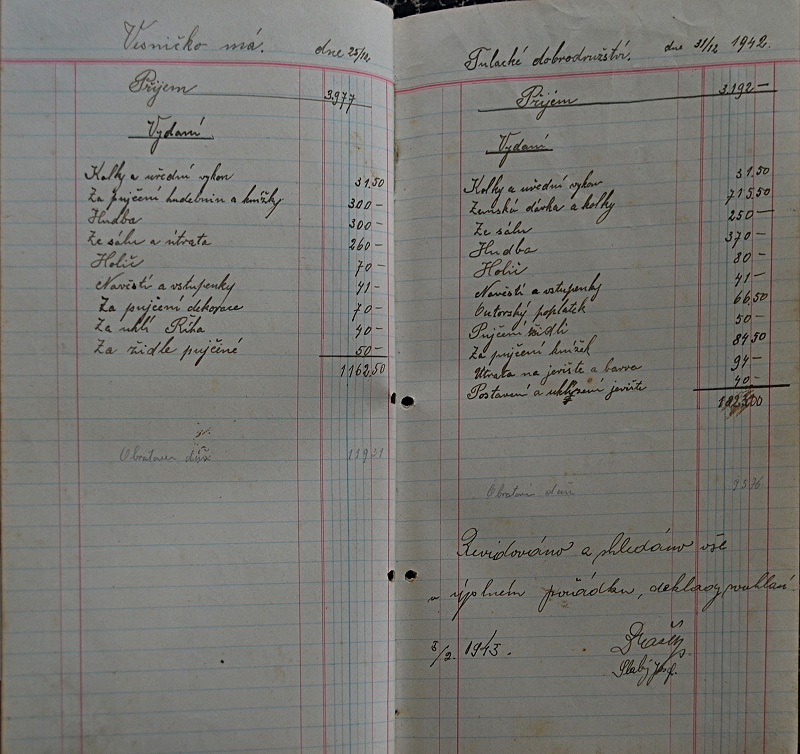 Vesničko má. dne 25/12
Příjem 3.977
Vydaní
Kolky a uřední vykon 31.50
Za pujčení hudebnin a knížky 300-
Hudba 300-
Ze sálu a útrata 260-
Holič 70-
Navěstí a vstupenky 41-
Za pujčení dekorace 70-
Za uhlí Říha 40-
Za židle pujčené 50-
1162.50
Obratová daň
Tulacké dobrodružství. dne 31/12 1942.
Příjem 3.192-
Vydaní
Kolky a uřední vykon 31.50
Zemská dávka a kolky 715.50
Ze sálu 250-
Hudba 370-
Holič 80-
Navěstí a vstupenky 41-
Autorský poplatek 66.50
Pujčení židlí 50-
Za pujčení knížek 84.50
Utrata na jeviště a barva 94-
Postavení a uklizení jeviště 40-
Obratová daň
Revidováno a shledáno vše
v úplném pořádku, doklady souhlasí.
/2. 1943.
Slabý Josef.